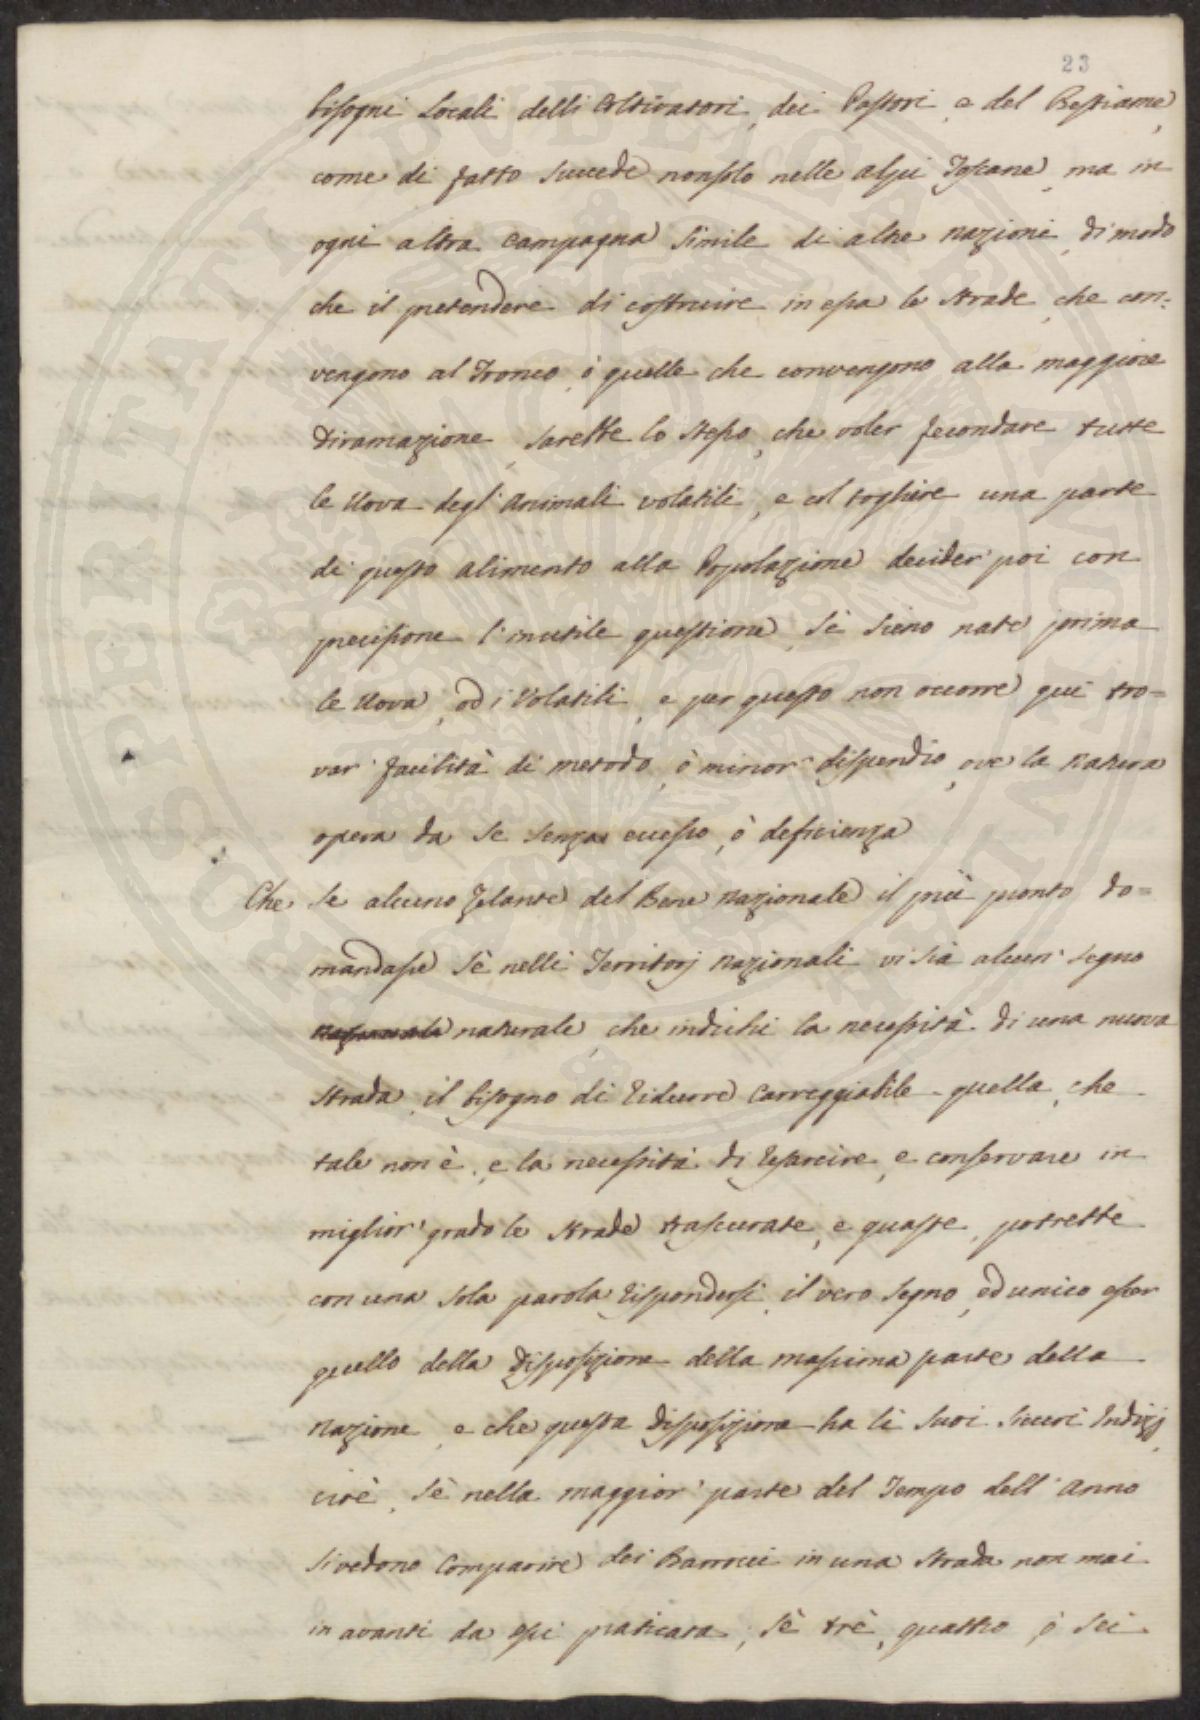 23
bisogni Locali delli Coltivatori, dei Pastori, e del Bestiame,
come di fatto succede nonsolo nelle alpi Toscane, ma in
ogni altra campagna simile di altre nazioni, di modo
che il pretendere di costruire in essa le strade, che con:
vengono al Tronco, ò quelle che convengono alla maggiore
Diramazione, sarebbe lo stesso, che voler fecondare tutte
le Uova degl'Animali volatili, e col togliere una parte
di questo alimento alla Popolazione decider poi con
precisione l'inutile questione, sè sieno nate prima
le Uova, od i Volatili, e per questo non occorre qui tro=
var' facilità di metodo, ò minor' dispendio, ove la Natura
opera da se senza eccesso, ò deficienza
Che se alcuno zelante del Bene Nazionale il più pronto do=
mandasse sè nelli Territorj Nazionali vi sia alcun' segno
naturale, che indichi la necessità di una nuova
strada, il bisogno di ridurre Carreggiabile quella, che
tale non è, e la necessità di resarcire, e conservare in
miglior' grado le strade trascurate, e guaste, potrebbe
con una sola parola rispondersi, il vero segno, ed unico esser
quello della Disposizione della massima parte della
Nazione, e che questa disposizione ha li suoi sicuri Indizj,
cioè, sè nella maggior' parte del Tempo dell'Anno
si vedono comparire dei Barrocci in una strada non mai
in avanti da essi praticata, sè trè, quattro, ò sei
PROSPERITATI PUBLICAE AVGENDAE